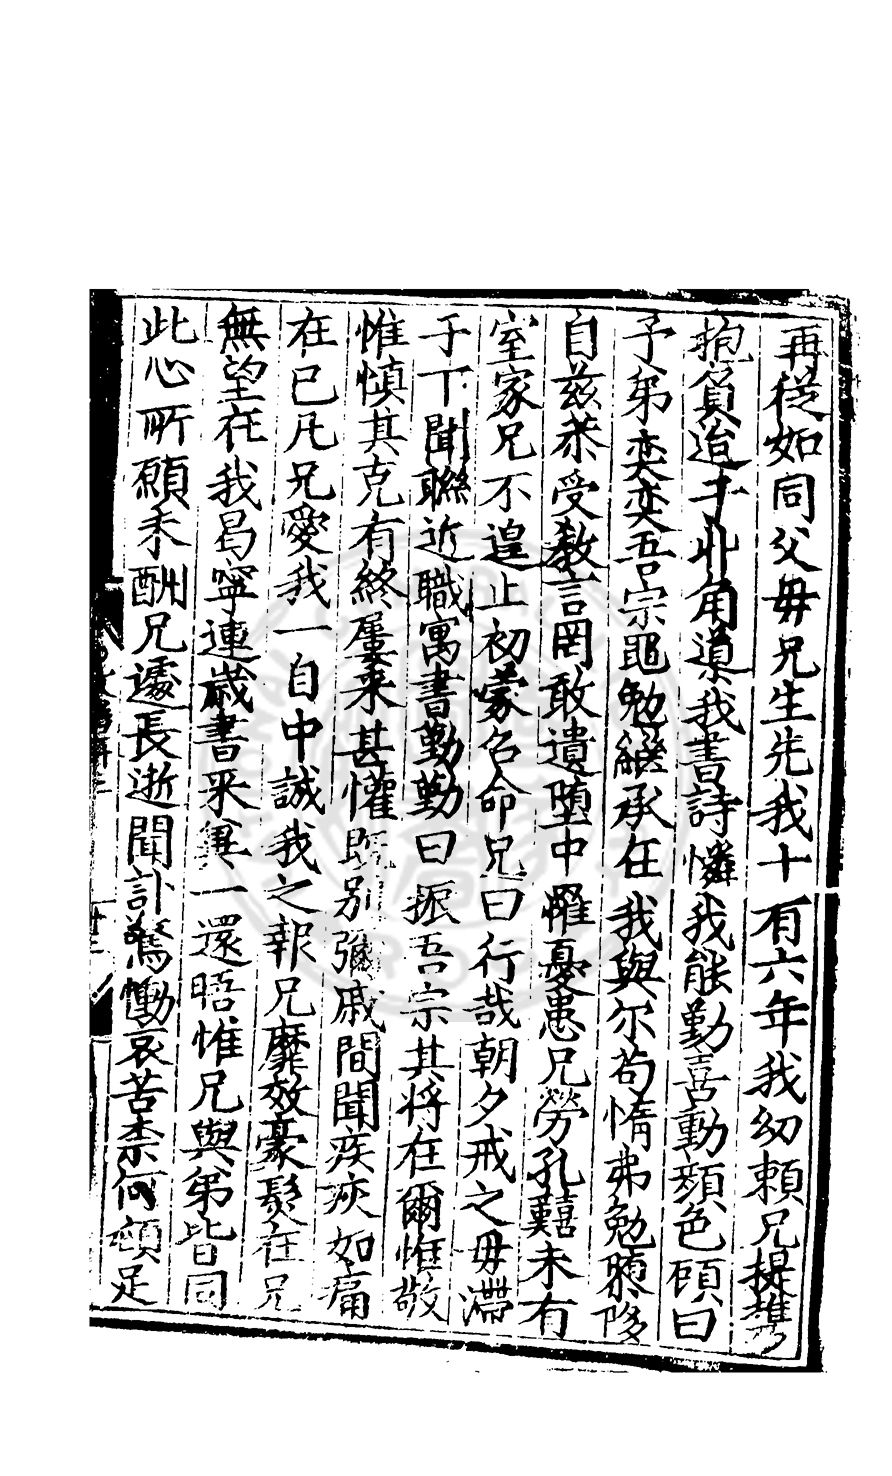 再從如同父毋兄生先我十有六年我幼頼兄提攜
抱負迨于丱角導我書詩憐我能勤喜動顏色頋曰
予弟奕奕吾宗黽勉繼承任我與尔苟惰弗勉隳
自兹恭受教言罔敢遺墮中罹憂患兄勞孔囏未有
室家兄不遑止初蒙召命兄曰行哉朝夕戒之毋滯
于下聞聮近職寓書勤勤曰振吾宗其將在爾惟敬
惟慎其克有終屢来甚懽既别彌戚間聞疾疢如痛
在已凡兄愛我一自中誠我之報兄靡效豪髮在兄
無望在我曷寧連歳書来兾一還晤惟兄與弟皆同
此心所願未酬兄遽長逝聞訃驚慟哀苦柰何頓足